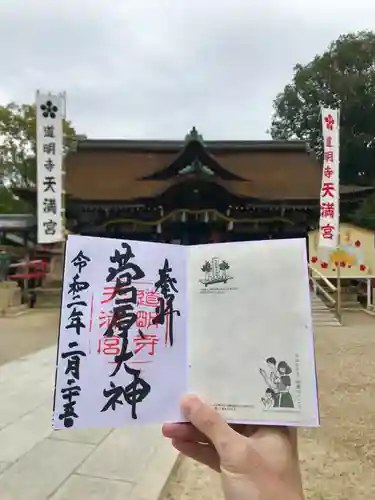 道明寺
天満宮
道明寺
天満宮
奉拝
道明寺
天満宮
菅原大神
令和二年二月二十五